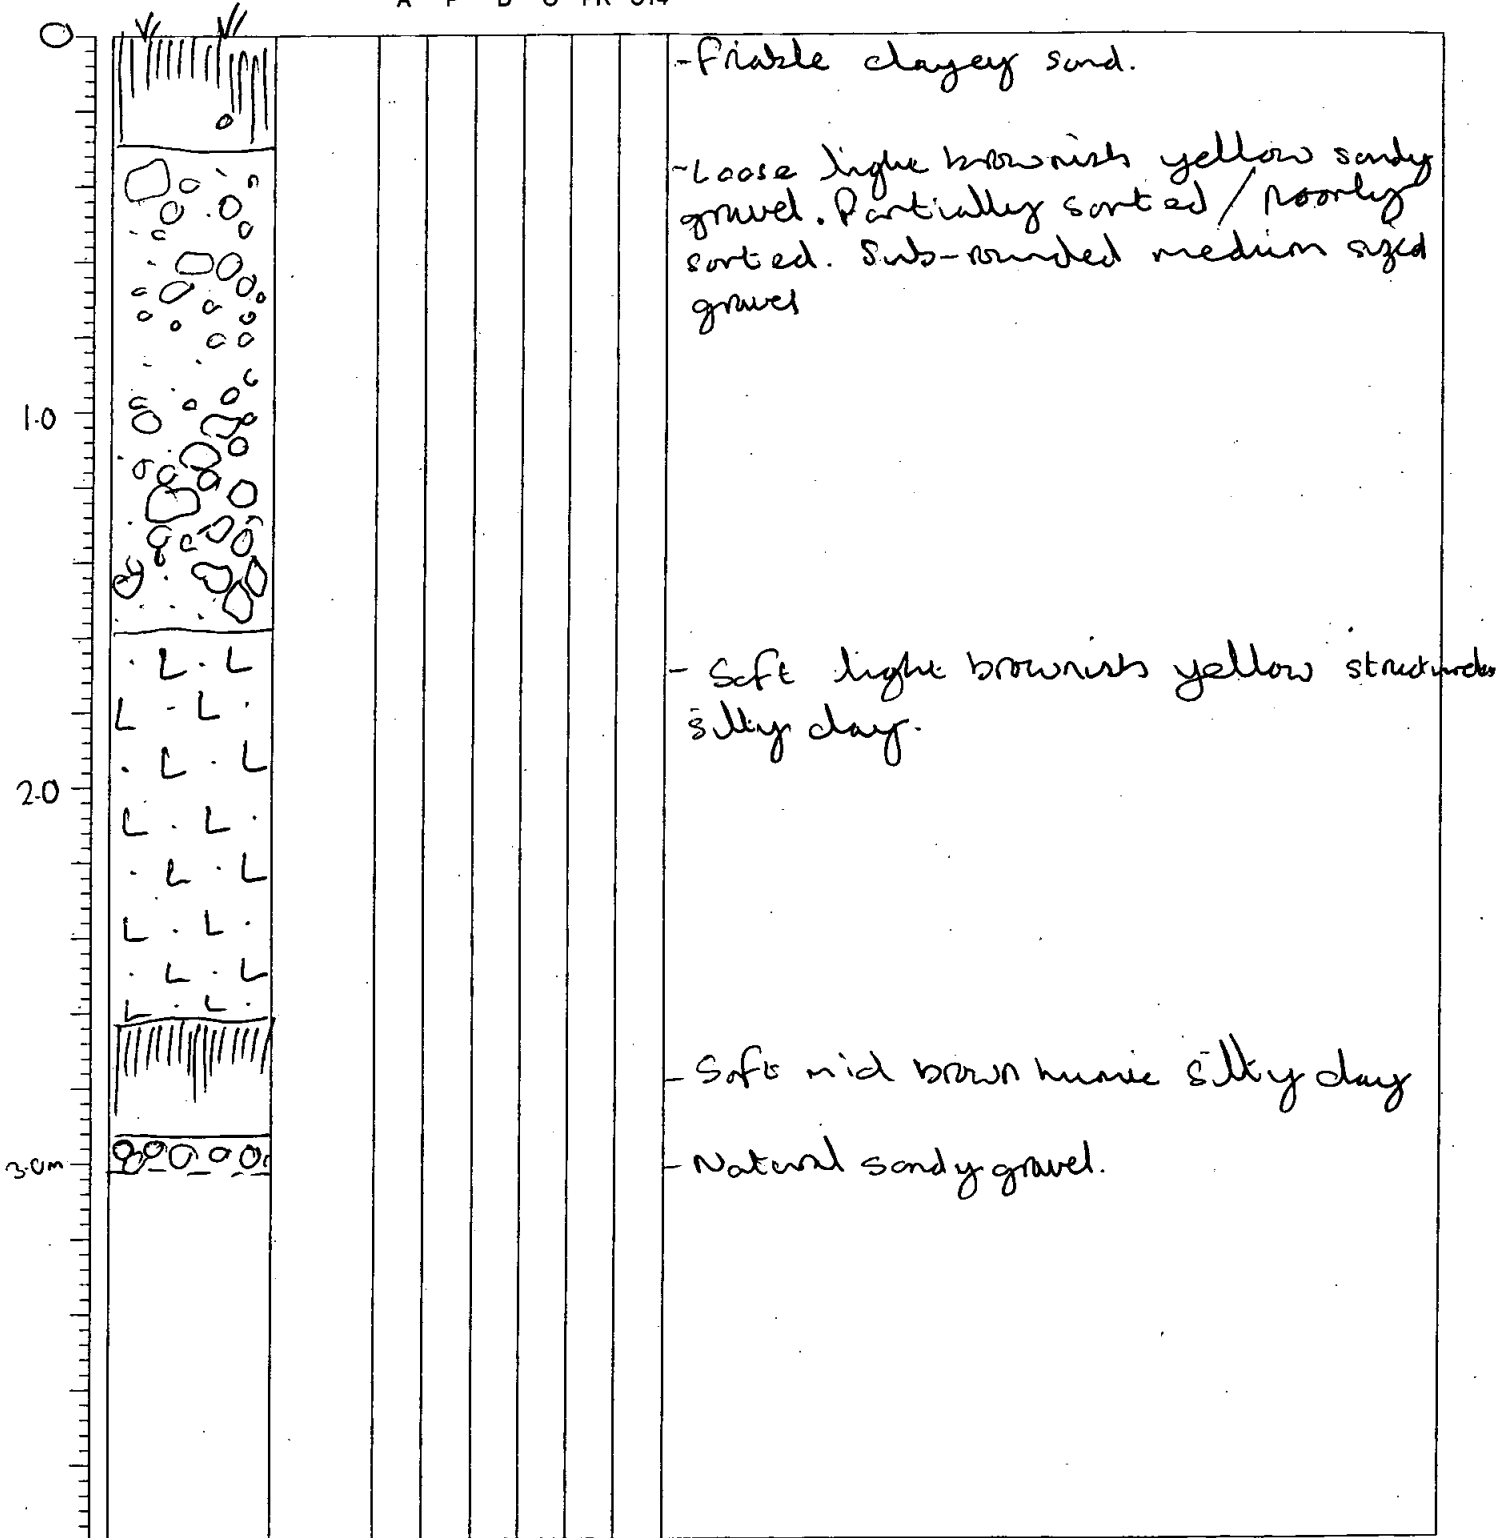 O
-Friable clayey sand.
-Loose light brownish yellow sandy
gravel. Partially sorted / poorly
sorted. Sub-rounded medium sized
gravel
1.0
- Soft light brownish yellow
silty clay.
2.0
- Soft mid brown humic silty clay
3.0m
- Natural sandy gravel.